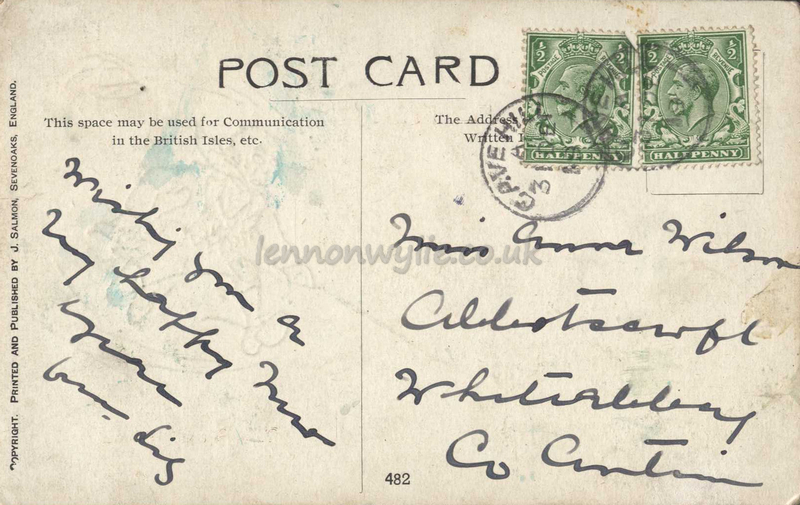 POST CARD
This space may be used for Communication
in the British Isles, etc.
The Address
Written
½ ½
HALFPENNY
½ ½
HALFPENNY
CAVEHILL
31
Wishing you a
very happy New
year
Miss Anna Wilson
Abbotscroft
Whiteabbey
Co Antrim
482
COPYRIGHT. PRINTED AND PUBLISHED BY J. SALMON, SEVENOAKS, ENGLAND.
lennonwylie.co.uk